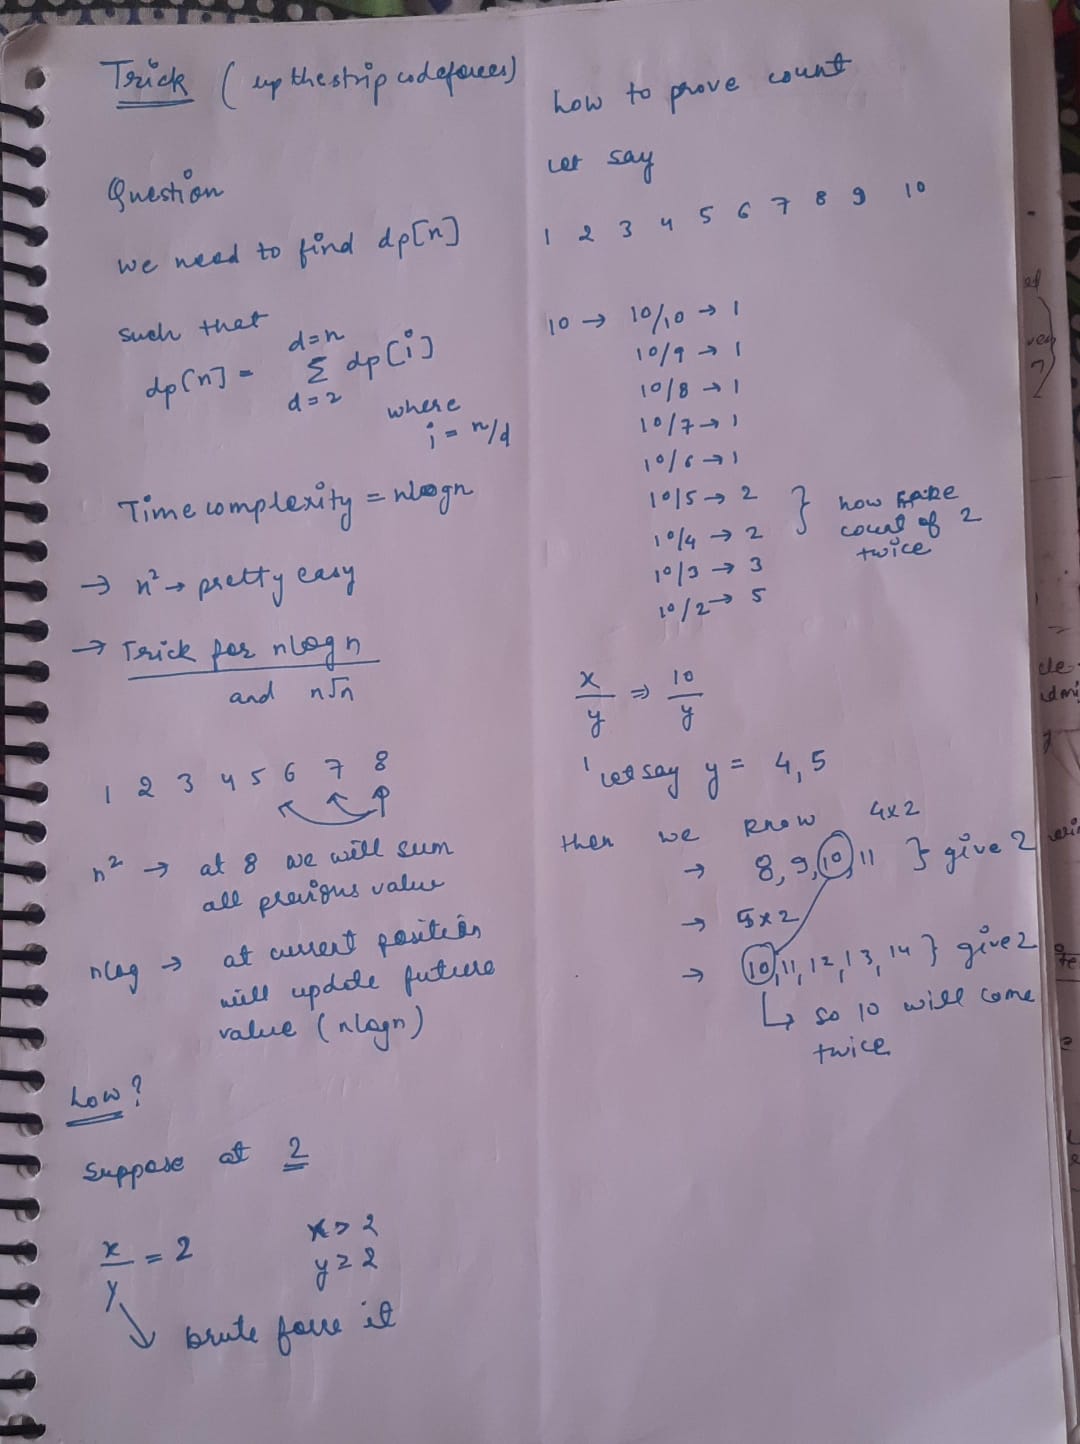 Trick ( up the strip codeforces)
Question
we need to find dp[n]
such that
d=n
dp[n] = Σ dp[i]
d=2
where
i = n/d
Time complexity = nlogn
→ n² → pretty easy
→ Trick for nlogn
and n√n
1 2 3 4 5 6 7 8
n² → at 8 we will sum
all previous value
nlog → at current position
will update future
value (nlogn)
how?
Suppose at 2
x/y = 2
x > 2
y ≥ 2
brute force it
how to prove count
Let say
1 2 3 4 5 6 7 8 9 10
10 → 10/10 → 1
10/9 → 1
10/8 → 1
10/7 → 1
10/6 → 1
10/5 → 2
10/4 → 2
10/3 → 3
10/2 → 5
} how
count of 2
twice
x/y ⇒ 10/y
Let say y = 4, 5
then we know 4x2
→ 8, 9, 10, 11 } give 2
→ 5x2
→ 10, 11, 12, 13, 14 } give 2
↳ so 10 will come
twice